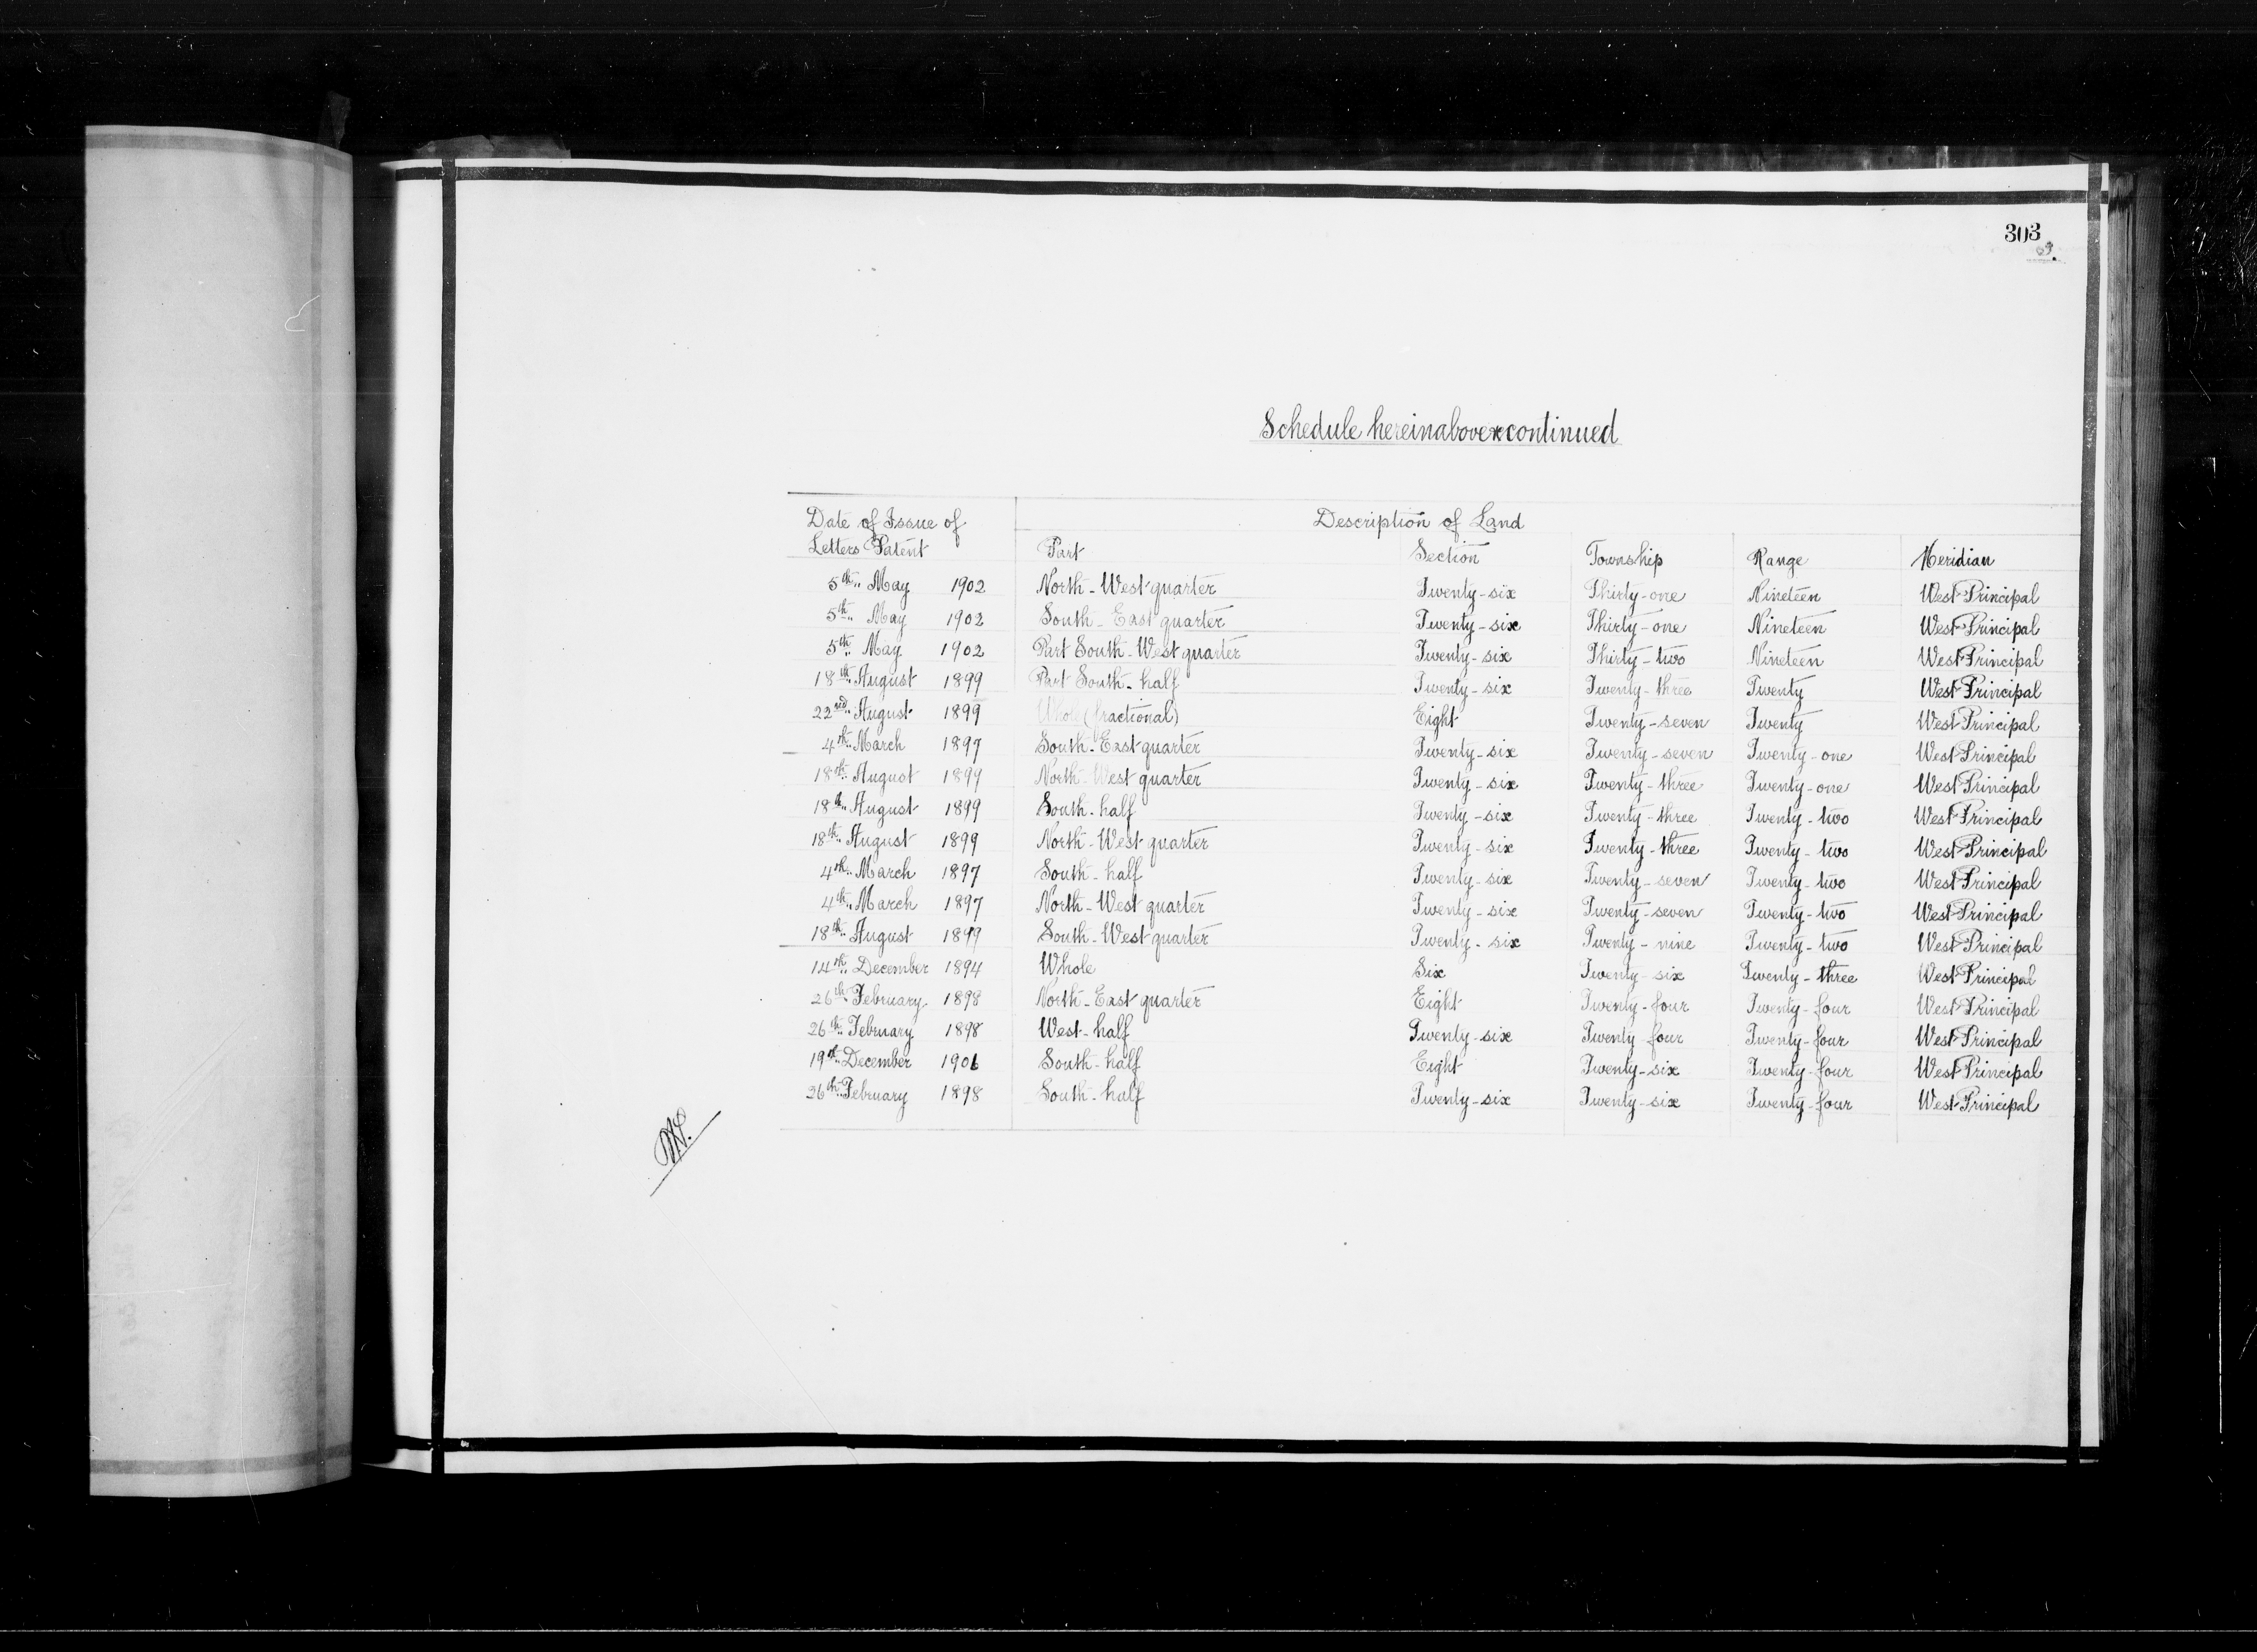 303
Schedule hereinabove continued
Date of Issue of Description of Land
Letters Patent Part Section Township Range Meridian
5th May 1902 North-West quarter Twenty-six Thirty-one Nineteen West Principal
5th May 1902 South-East quarter Twenty-six Thirty-one Nineteen West Principal
5th May 1902 Part South-West quarter Twenty-six Thirty-two Nineteen West Principal
18th August 1899 Part South-half Twenty-six Twenty-three Twenty West Principal
22nd August 1899 Whole (fractional) Eight Twenty-seven Twenty West Principal
4th March 1897 South-East quarter Twenty-six Twenty-seven Twenty-one West Principal
18th August 1899 North-West quarter Twenty-six Twenty-three Twenty-one West Principal
18th August 1899 South-half Twenty-six Twenty-three Twenty-two West Principal
18th August 1899 North-West quarter Twenty-six Twenty-three Twenty-two West Principal
4th March 1897 South-half Twenty-six Twenty-seven Twenty-two West Principal
4th March 1897 North-West quarter Twenty-six Twenty-seven Twenty-two West Principal
18th August 1899 South-West quarter Twenty-six Twenty-nine Twenty-two West Principal
14th December 1894 Whole Six Twenty-six Twenty-three West Principal
26th February 1898 North-East quarter Eight Twenty-four Twenty-four West Principal
26th February 1898 West-half Twenty-six Twenty-four Twenty-four West Principal
19th December 1901 South-half Eight Twenty-six Twenty-four West Principal
26th February 1898 South-half Twenty-six Twenty-six Twenty-four West Principal